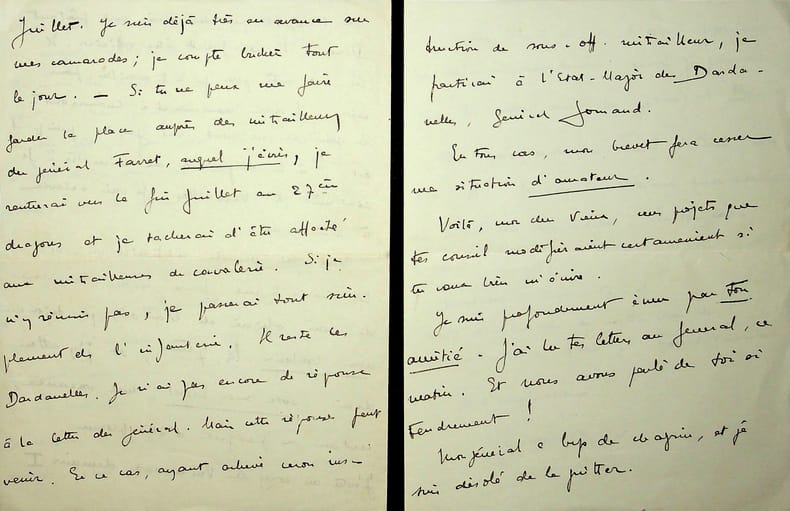 Juillet. Je suis déjà très en avance sur
mes camarades ; je compte bûcher tout
le jour. — Si tu ne peux me faire
garder la place auprès des mitrailleurs
du général Farret, auquel j'écris, je
rentrerai vers la fin Juillet au 27èm
dragons et je tacherai d'être affecté
aux mitrailleuses de cavalerie. Si je
n'y réussis pas, je passerai tout sim-
plement ds l'infanterie. Il reste les
Dardanelles. Je n'ai pas encore de réponse
à la lettre du général. Mais cette réponse peut
venir. En ce cas, ayant achevé mon ins-
truction de sous-off. mitrailleur, je
partirai à l'Etat-Major des Darda-
nelles, Général Gouraud.
En tous cas, mon brevet fera cesser
ma situation d'amateur.
Voilà, mon cher Vieux, mes projets que
tes conseils modifieraient certainement si
tu veux bien m'écrire.
Je suis profondément ému par ton
amitié. J'ai lu tes lettres au général, ce
matin. Et nous avons parlé de toi si
tendrement !
Mon général a bcp de chagrin, et je
suis désolé de le quitter.